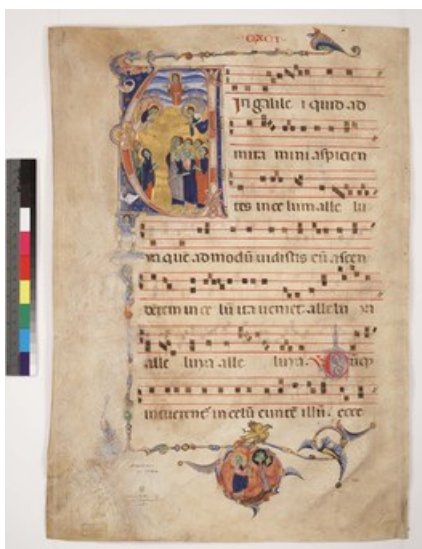 In galile i quid ad
mira mini aspicien
tes in ce lum alle lu
ya que ad modū uidistis eū ascen
dētem in ce lū ita ueniet alle lu ya
alle luya alle luya.
in tuerenē in celū euntē illū. ecce